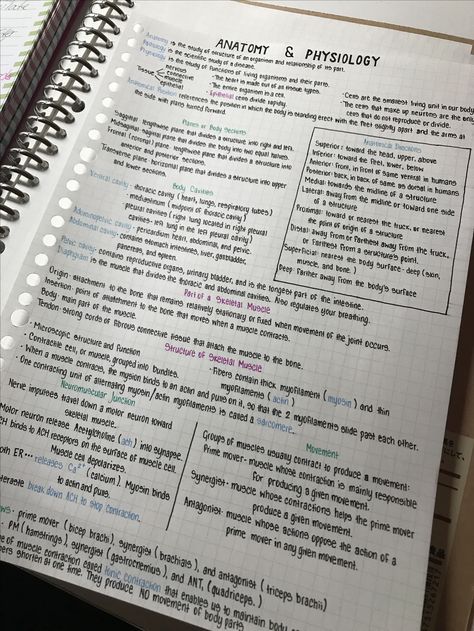 ANATOMY & PHYSIOLOGY
Anatomy is the study of structure of an organism and relationship of its part.
Pathology is the scientific study of a disease.
Physiology is the study of functions of living organisms and their parts.
Tissue
nervous
connective
muscle
epithelial
· The heart is made out of tissue types.
· The entire organism is a cell.
· Epithelial cells divide rapidly.
· Cells are the smallest living unit in our body
· The cells that make up neurons are the only
cells that do not reproduce or divide.
Anatomical Position references the position in which the body is standing erect with the feet slightly apart and the arms at
the side with palms turned forward.
Planes or Body Sections
Sagittal: lengthwise plane that divides a structure into right and left.
Midsagittal: sagittal plane that divides the body into two equal halves.
Frontal (coronal) plane: lengthwise plane that divides a structure into
anterior and posterior sections.
Transverse plane: horizontal plane that divides a structure into upper
and lower sections.
Anatomical Directions
Superior: toward the head, upper, above
Inferior: toward the feet, lower, below
Anterior: front, in front of same ventral in humans
Posterior: back, in back of same as dorsal in humans
Medial: towards the midline of a structure
Lateral: away from the midline or toward one side
of a structure
Proximal: toward or nearest the trunk, or nearest
the point of origin of a structure
Distal: away from or farthest away from the trunk,
or farthest from a structure's point.
Superficial: nearest the body surface - deep (skin,
muscle, and bone.)
Deep: farther away from the body's surface
Body Cavities
Ventral cavity - thoracic cavity (heart, lungs, respiratory tubes)
· mediastinum (midpoint of thoracic cavity)
pleural cavities (right lung located in right pleural
cavities - left lung in the left pleural cavity)
Adominopelvic cavity - pericardium: heart, abdominal, and pelvic.
Abdominal cavity - contains stomach, intestines, liver, gallbladder,
pancreas, and spleen.
Pelvic cavity - contains reproductive organs, urinary bladder, and is the longest part of the intestine.
Diaphragm is the muscle that divides the thoracic and abdominal cavities. Also regulates your breathing.
Part of a Skeletal Muscle
Origin: attachment to the bone that remains relatively stationary or fixed when movement of the joint occurs.
Insertion: point of attachment to the bone that moves when a muscle contracts.
Body: main part of the muscle.
Tendon: strong cords of fibrous connective tissue that attach the muscle to the bone.
Structure of Skeletal Muscle
· Microscopic structure and function
· Contractile cell, or muscle, grouped into bundles.
· Fibers contain thick myofilament (myosin) and thin
myofilaments (actin)
· When a muscle contracts, the myosin binds to an actin and pulls on it, so that the 2 myofilaments slide past each other.
· One contracting unit of alternating myosin/actin myofilaments is called a sarcomere.
Neuromuscular Junction
Nerve impulses travel down a motor neuron toward
skeletal muscle.
Motor neuron release Acetylcholine (ach) into synapse.
ACH binds to ACH receptors on the surface of muscle cell.
Muscle cell depolarizes.
ER... releases Ca²⁺ (calcium). Myosin binds
to actin and pulls.
break down ACH to stop contraction.
Movement
Groups of muscles usually contract to produce a movement:
Prime mover - muscle whose contraction is mainly responsible
for producing a given movement.
Synergist - muscle whose contractions helps the prime mover
produce a given movement.
Antagonist: muscle whose actions oppose the action of a
prime mover in any given movement.
prime mover (bicep brachi), synergist (brachialis), and antagonist (triceps brachii)
PM (hamstrings), synergist (gastrocnemius), and ANT. (quadriceps.)
of muscle contraction called tonic contraction that enables us to maintain body
shorten at one time. They produce NO movement of body parts